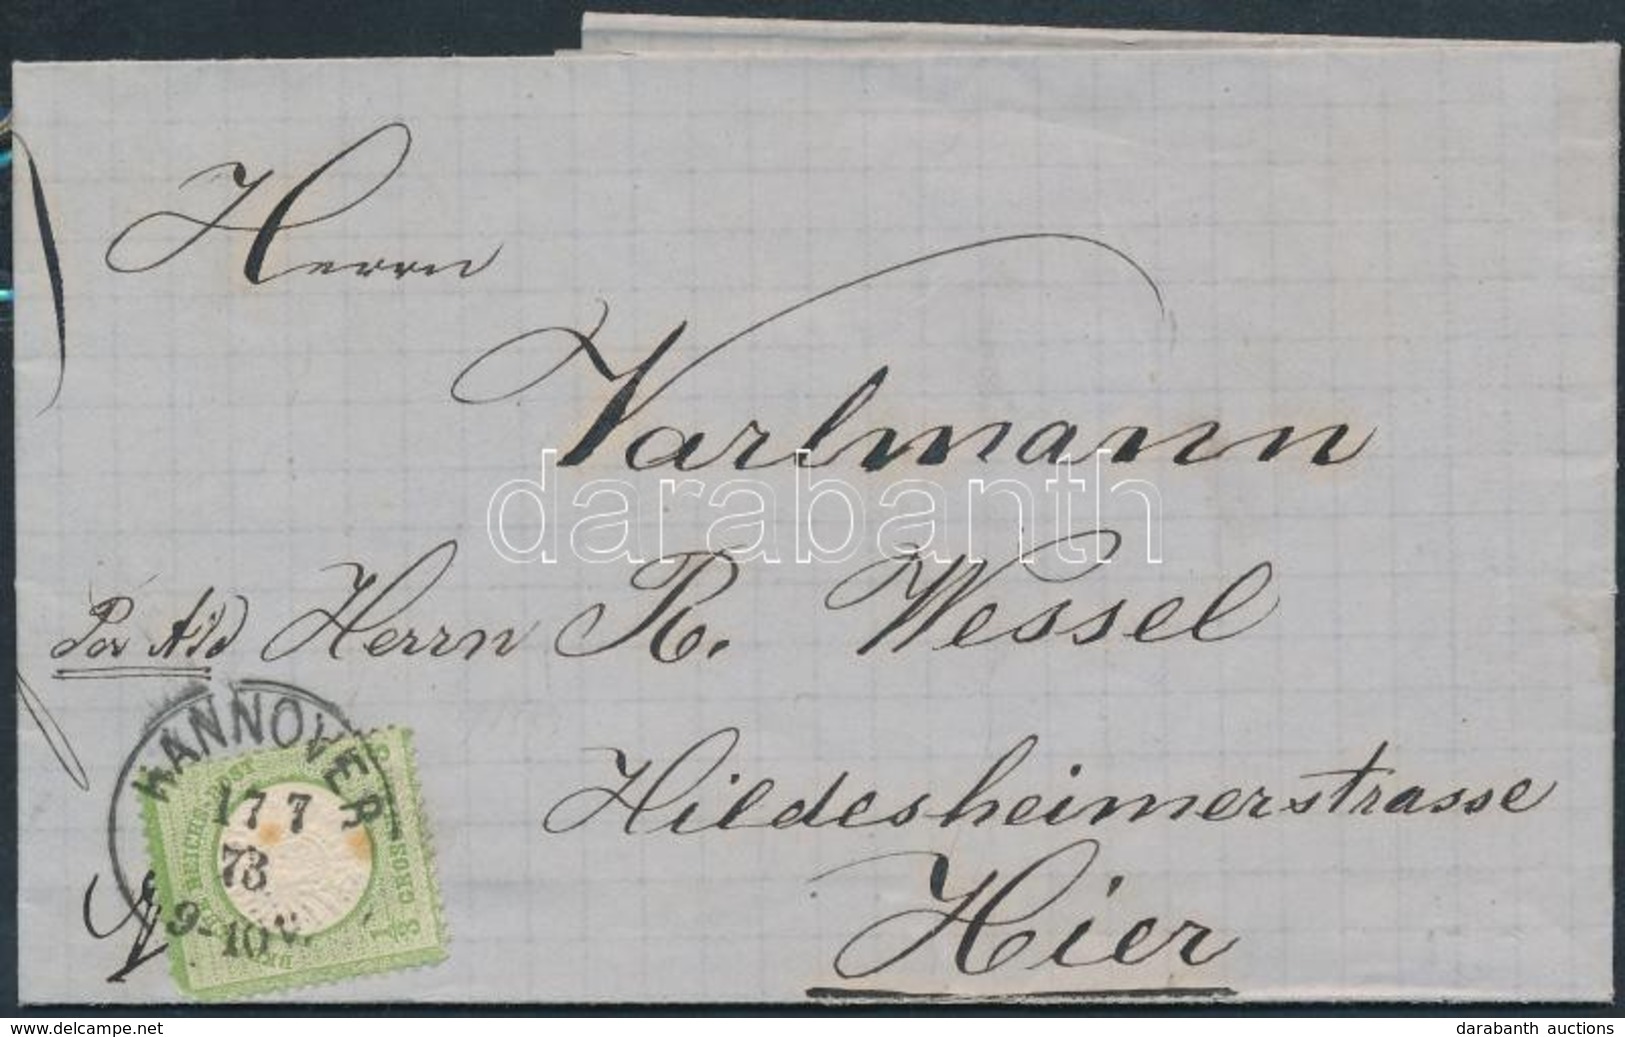 Herrn
Varlmann
Per Add Herrn R. Wessel
Hildesheimerstrasse
Hier
HANNOVER
17 7
73
9-10 V.
REICHS POST
GROSCHEN
1/3
darabanth
www.delcampe.net
darabanth auctions